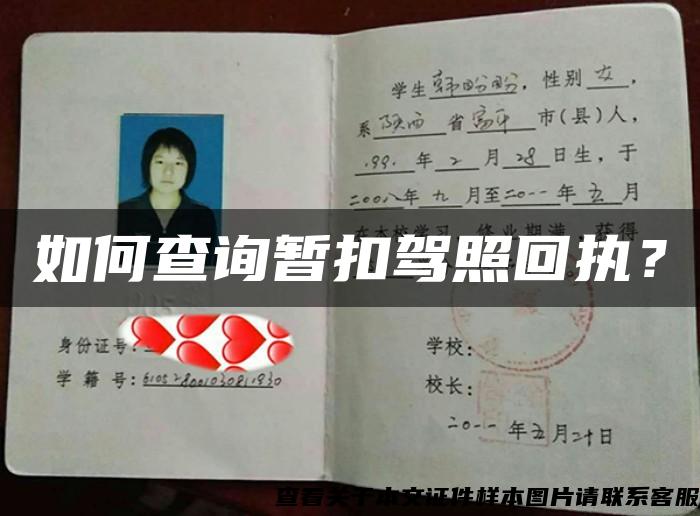 学生韩盼盼，性别女，
系陕西省富平市(县)人，
1991年2月28日生，于
二00八年九月至二0一一年五月
在本校学习，修业期满，获得
如何查询暂扣驾照回执？
身份证号：
学籍号：610528001030811930
学校：
校长：
二0一一年五月二十日
查看关于本文证件样本图片请联系客服